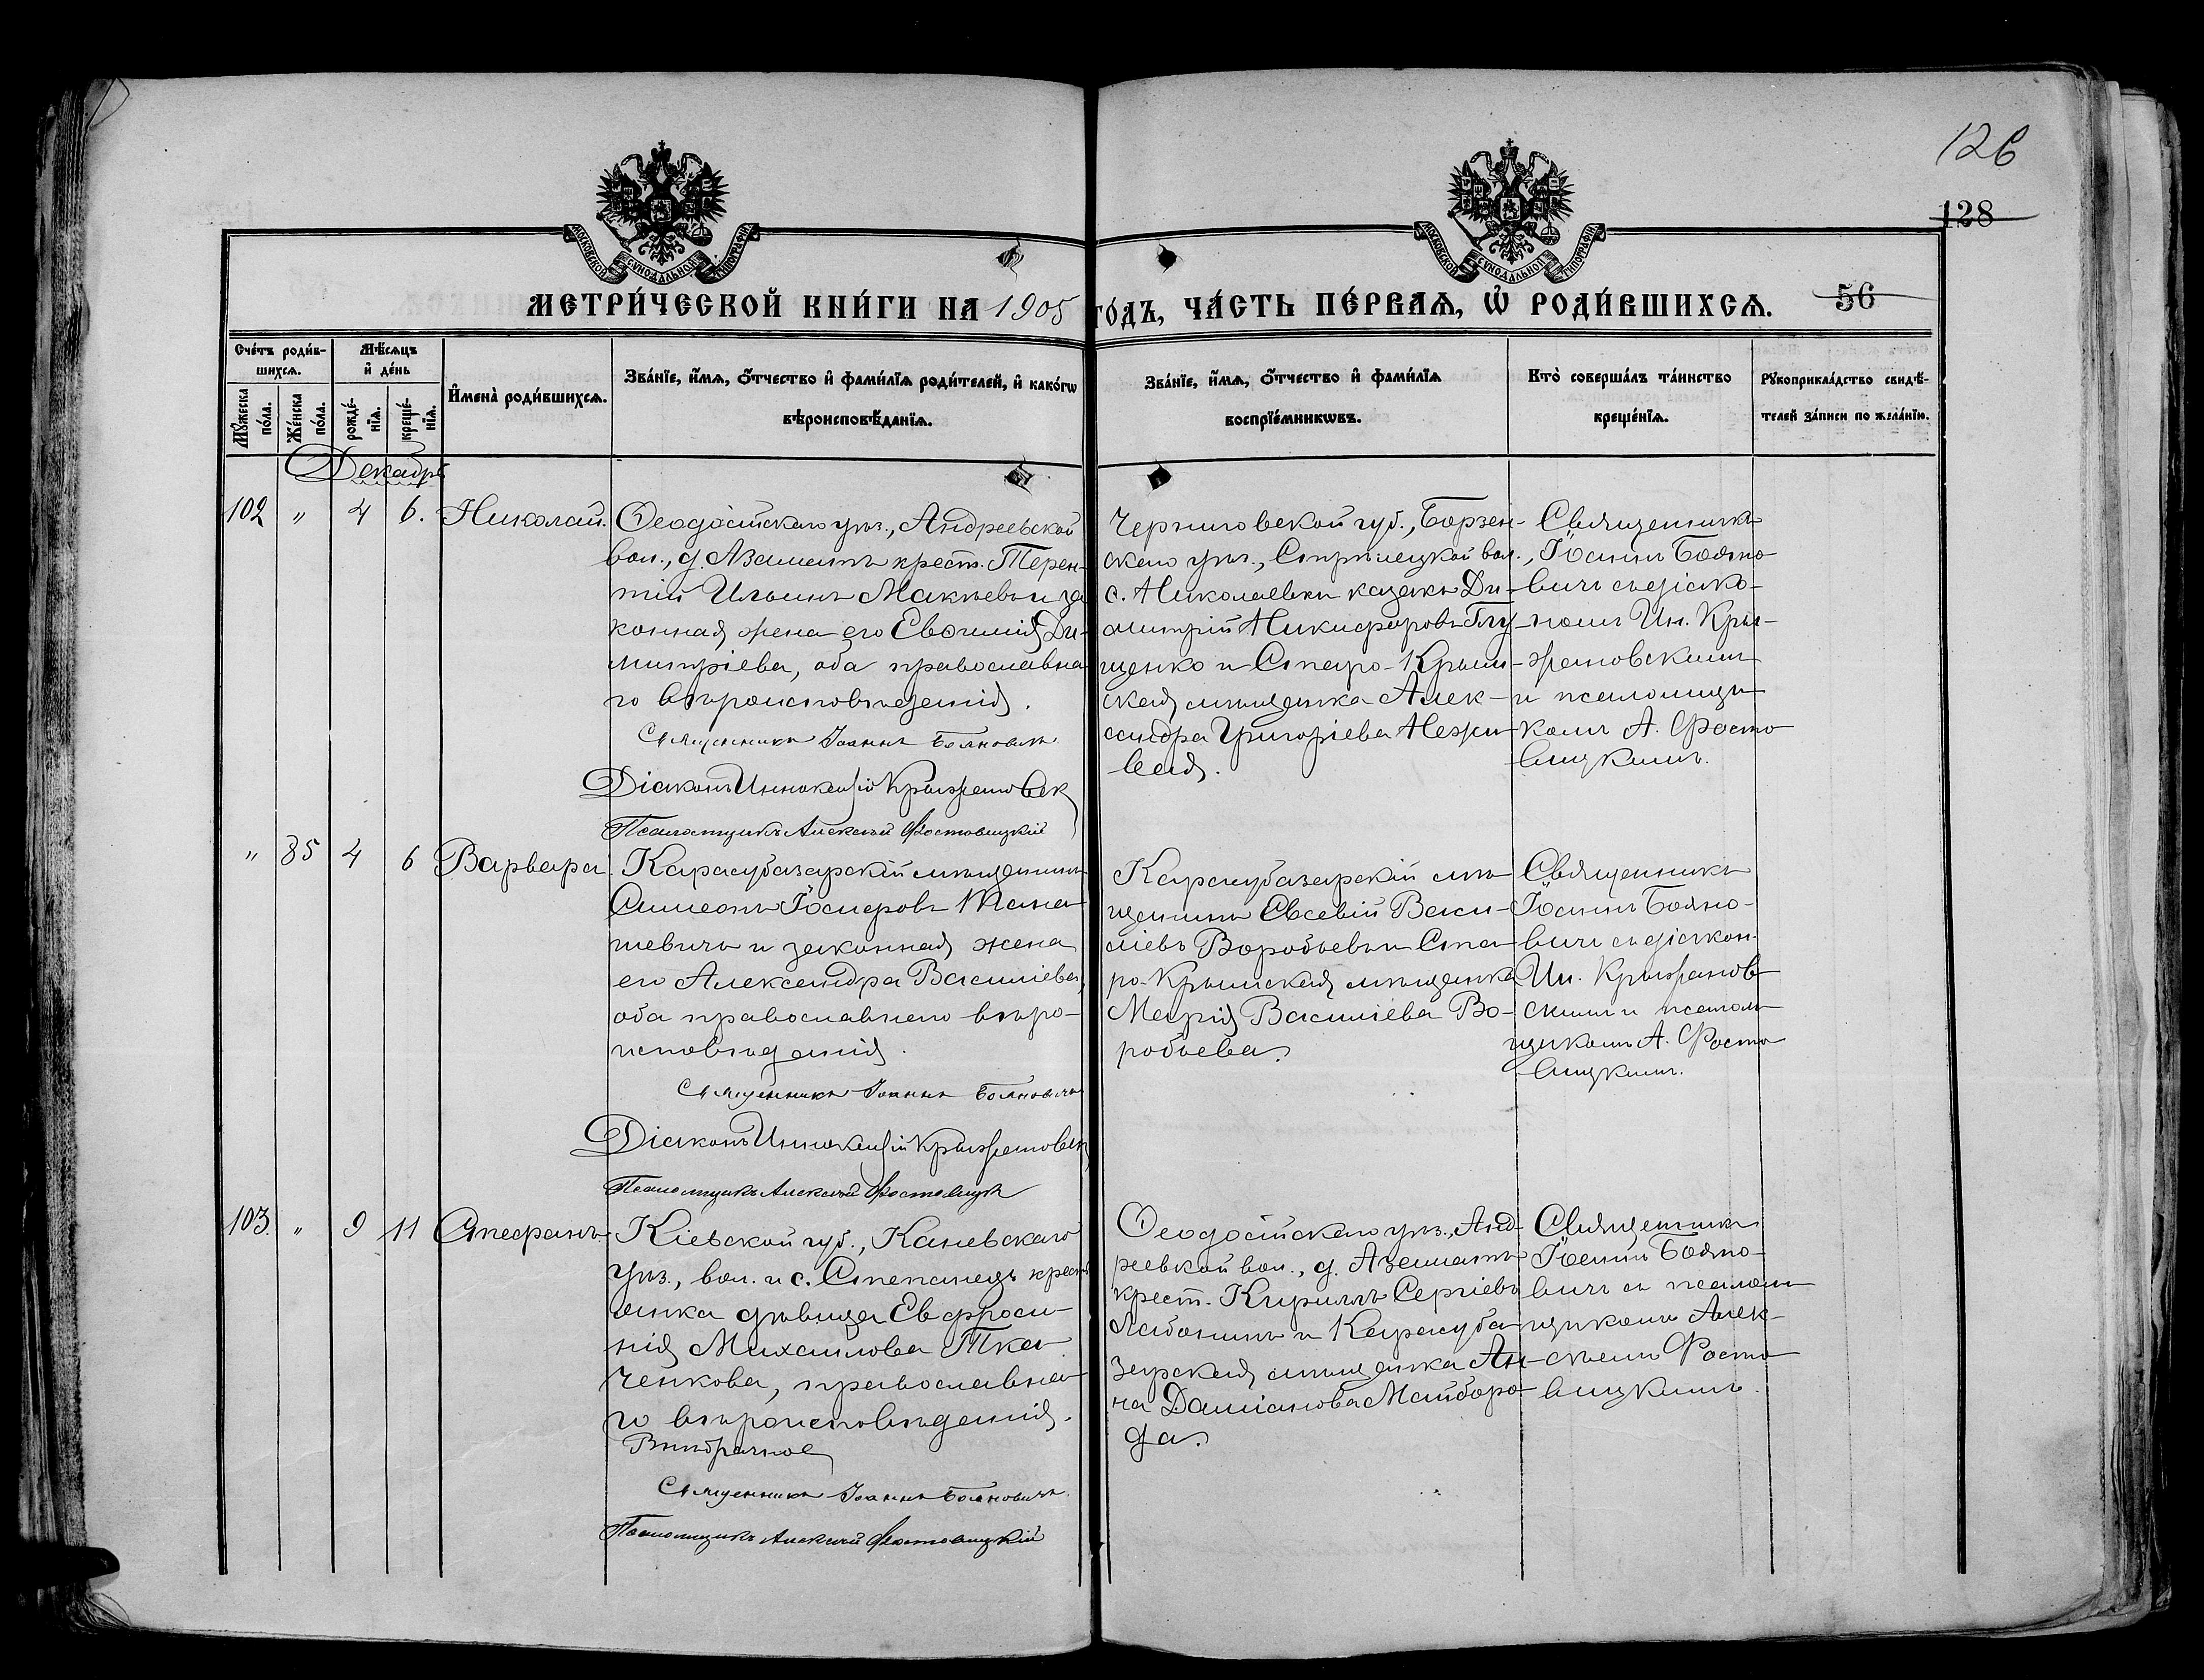 126
128
МОСКОВСКОЙ СѴНОДАЛЬНОЙ ТИПОГРАФІИ
МОСКОВСКОЙ СѴНОДАЛЬНОЙ ТИПОГРАФІИ
МЕТРИ́ЧЕСКОЙ КНИ́ГИ НА 1905 ГО́ДЪ, ЧА́СТЬ ПЕ́РВАѦ, Ѽ РОДИ́ВШИХСѦ.
56
Сче́тъ роди́в-
шихсѧ.
Мꙋ́жеска по́ла.
Же́нска по́ла.
Мѣ́сѧцъ
и҆ де́нь
рожде́-
нїѧ.
креще́-
нїѧ.
И҆мена̀ роди́вшихсѧ.
Зва́нїе, и҆́мѧ, ѻ҆́тчество и҆ фамѝлїѧ роди́телей, и҆ како́гѡ
вѣроисповѣ́данїѧ.
Зва́нїе, и҆́мѧ, ѻ҆́тчество и҆ фами́лїѧ
воспрїе́мникѡвъ.
Кто̀ соверша́лъ та́инство
креще́нїѧ.
Рꙋкоприкла́дство свидѣ́-
телей за́писи по жела́нїю.
Декабрь
102 " 4 6. Николай.
Ѳеодосійскаго уѣз., Андреевской
вол., д. Азаматъ крест. Терен-
тій Ильинъ Макѣевъ и за
конная жена его Евѳимія Ди-
митріева, оба православна
го вѣроисповѣданія.
Священникъ Іоаннъ Бояновичъ
Діаконъ Иннокентій Крыжановск
Псаломщикъ Алексѣй Фостовицкій
Черниговской губ., Борзен-
скаго уѣз., Стрѣлецкой вол.,
с. Николаевки казакъ Ди-
митрій Никифоровъ Глу-
щенко и Старо-Крым-
ская мѣщанка Алек-
сандра Григоріева Нежи-
вая.
Священникъ
Іоаннъ Бояно-
вичъ съ діако-
номъ Ин. Кры-
жановскимъ
и псаломщи
комъ А. Фосто
вицкимъ.
" 85 4 6 Варвара.
Карасубазарскій мѣщанинъ
Симеонъ Іосифовъ
шевичъ и законная жена
его Александра Васильева,
оба православнаго вѣро-
исповѣданія.
Священникъ Іоаннъ Бояновичъ
Діаконъ Иннокентій Крыжановск
Псаломщикъ Алексѣй Фостовицкі
Карасубазарскій мѣ-
щанинъ Евсевій Васи-
ліевъ Воробьевъ и Ста-
ро-Крымская мѣщанка
Марія Васильева Во-
робьева.
Священникъ
Іоаннъ Бояно-
вичъ съ діакон.
Ин. Крыжанов-
скимъ и псалом-
щикомъ А. Фосто
вицкимъ.
103. " 9 11 Стефанъ.
Кіевской губ., Каневскаго
уѣз., вол. и с. Степанецъ крест
янка дѣвица Евфроси-
нія Михаилова Тка-
ченкова, православна-
го вѣроисповѣданія.
Внѣбрачное
Священникъ Іоаннъ Бояновичъ.
Псаломщикъ Алексѣй Фостовицкій
Ѳеодосійскаго уѣз., Анд-
реевкой вол., д. Азаматъ
крест. Кириллъ Сергіевъ
Лабонинъ и Карасуба-
зарская мѣщанка Ан-
на Даміанова Майборо-
да.
Священникъ
Іоаннъ Бояно-
вичъ съ псалом-
щикомъ Алек-
сѣемъ Фосто
вицкимъ.